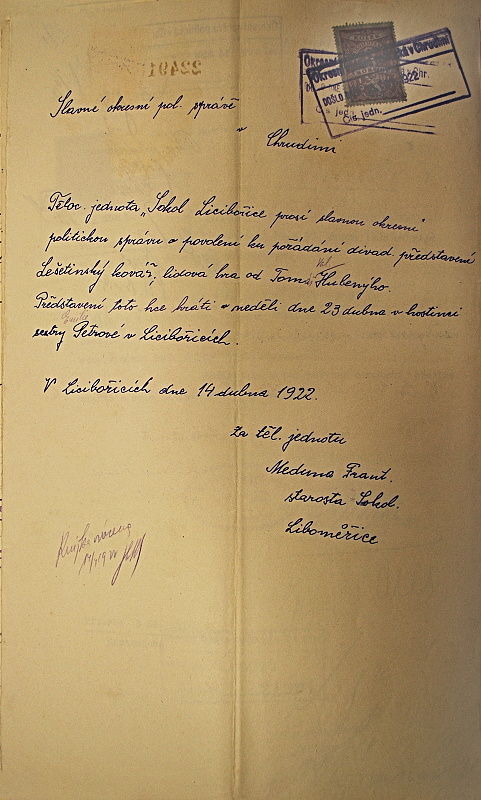 22491
Slavné okresní pol. správě
v
Chrudimi
DOŠLO
Čís. jedn.
Těloc. jednota „Sokol Licibořice prosí slavnou okresní"
politickou správu o povolení ku pořádání divad. představení
Lešetinský kovář, lidová hra od Tom. Hubenýho.
Představení toto hce hráti v neděli dne 23 dubna v hostinci
Emilie
sestry Petrové v Licibořicích.
V Licibořicích dne 14 dubna 1922.
Za těl. jednotu
Meduna Frant.
starosta Sokol.
Liboměřice